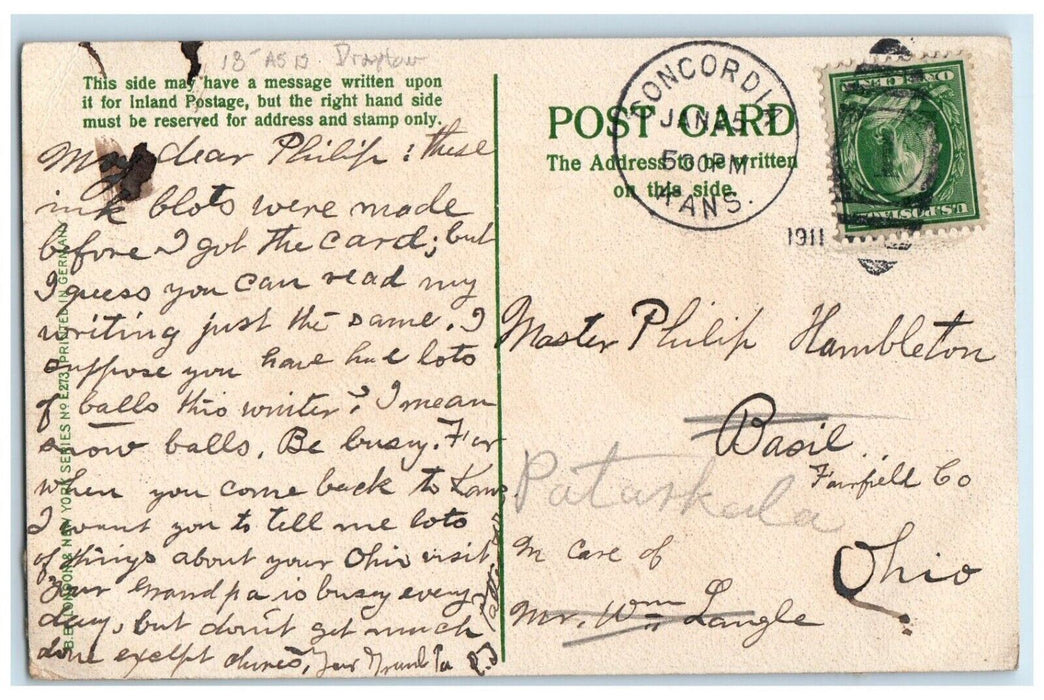 This side may have a message written upon
it for Inland Postage, but the right hand side
must be reserved for address and stamp only.
My dear Philip: these
ink blots were made
before I got the card; but
I guess you can read my
writing just the same. I
suppose you have had lots
of balls this winter? I mean
snow balls. Be busy. For
when you come back to Kans
I want you to tell me lots
of things about your Ohio visit
Your Grandpa is busy every
day, but don't get much
done except chores, Your Grand Pa
B.B. LONDON & NEW YORK SERIES No E273 PRINTED IN GERMANY
POST CARD
The Address to be written
on this side.
CONCORDIA
JAN 25
5 00 PM
KANS.
1911
U.S. POSTAGE
Master Philip Hambleton
Basil
Pataskala
Fairfield Co
In care of
Ohio
Mr. Wm Langle